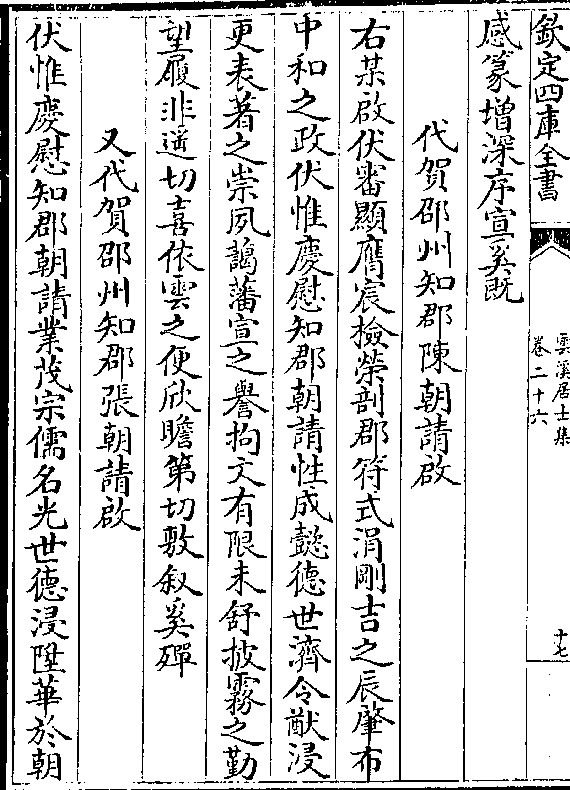 欽定四庫全書
雲溪居士集
卷二十六
十七
感篆增深序宣奚既
代賀邵州知郡陳朝請啟
右某啟伏審顯膺宸檢榮剖郡符式涓剛吉之辰肇布
中和之政伏惟慶慰知郡朝請性成懿德世濟令猷浸
更表著之崇夙藹藩宣之譽拘文有限未舒披霧之勤
望履非遥切喜依雲之便欣瞻第切敷叙奚殫
又代賀邵州知郡張朝請啟
伏惟慶慰知郡朝請業茂宗儒名光世德浸陞華於朝